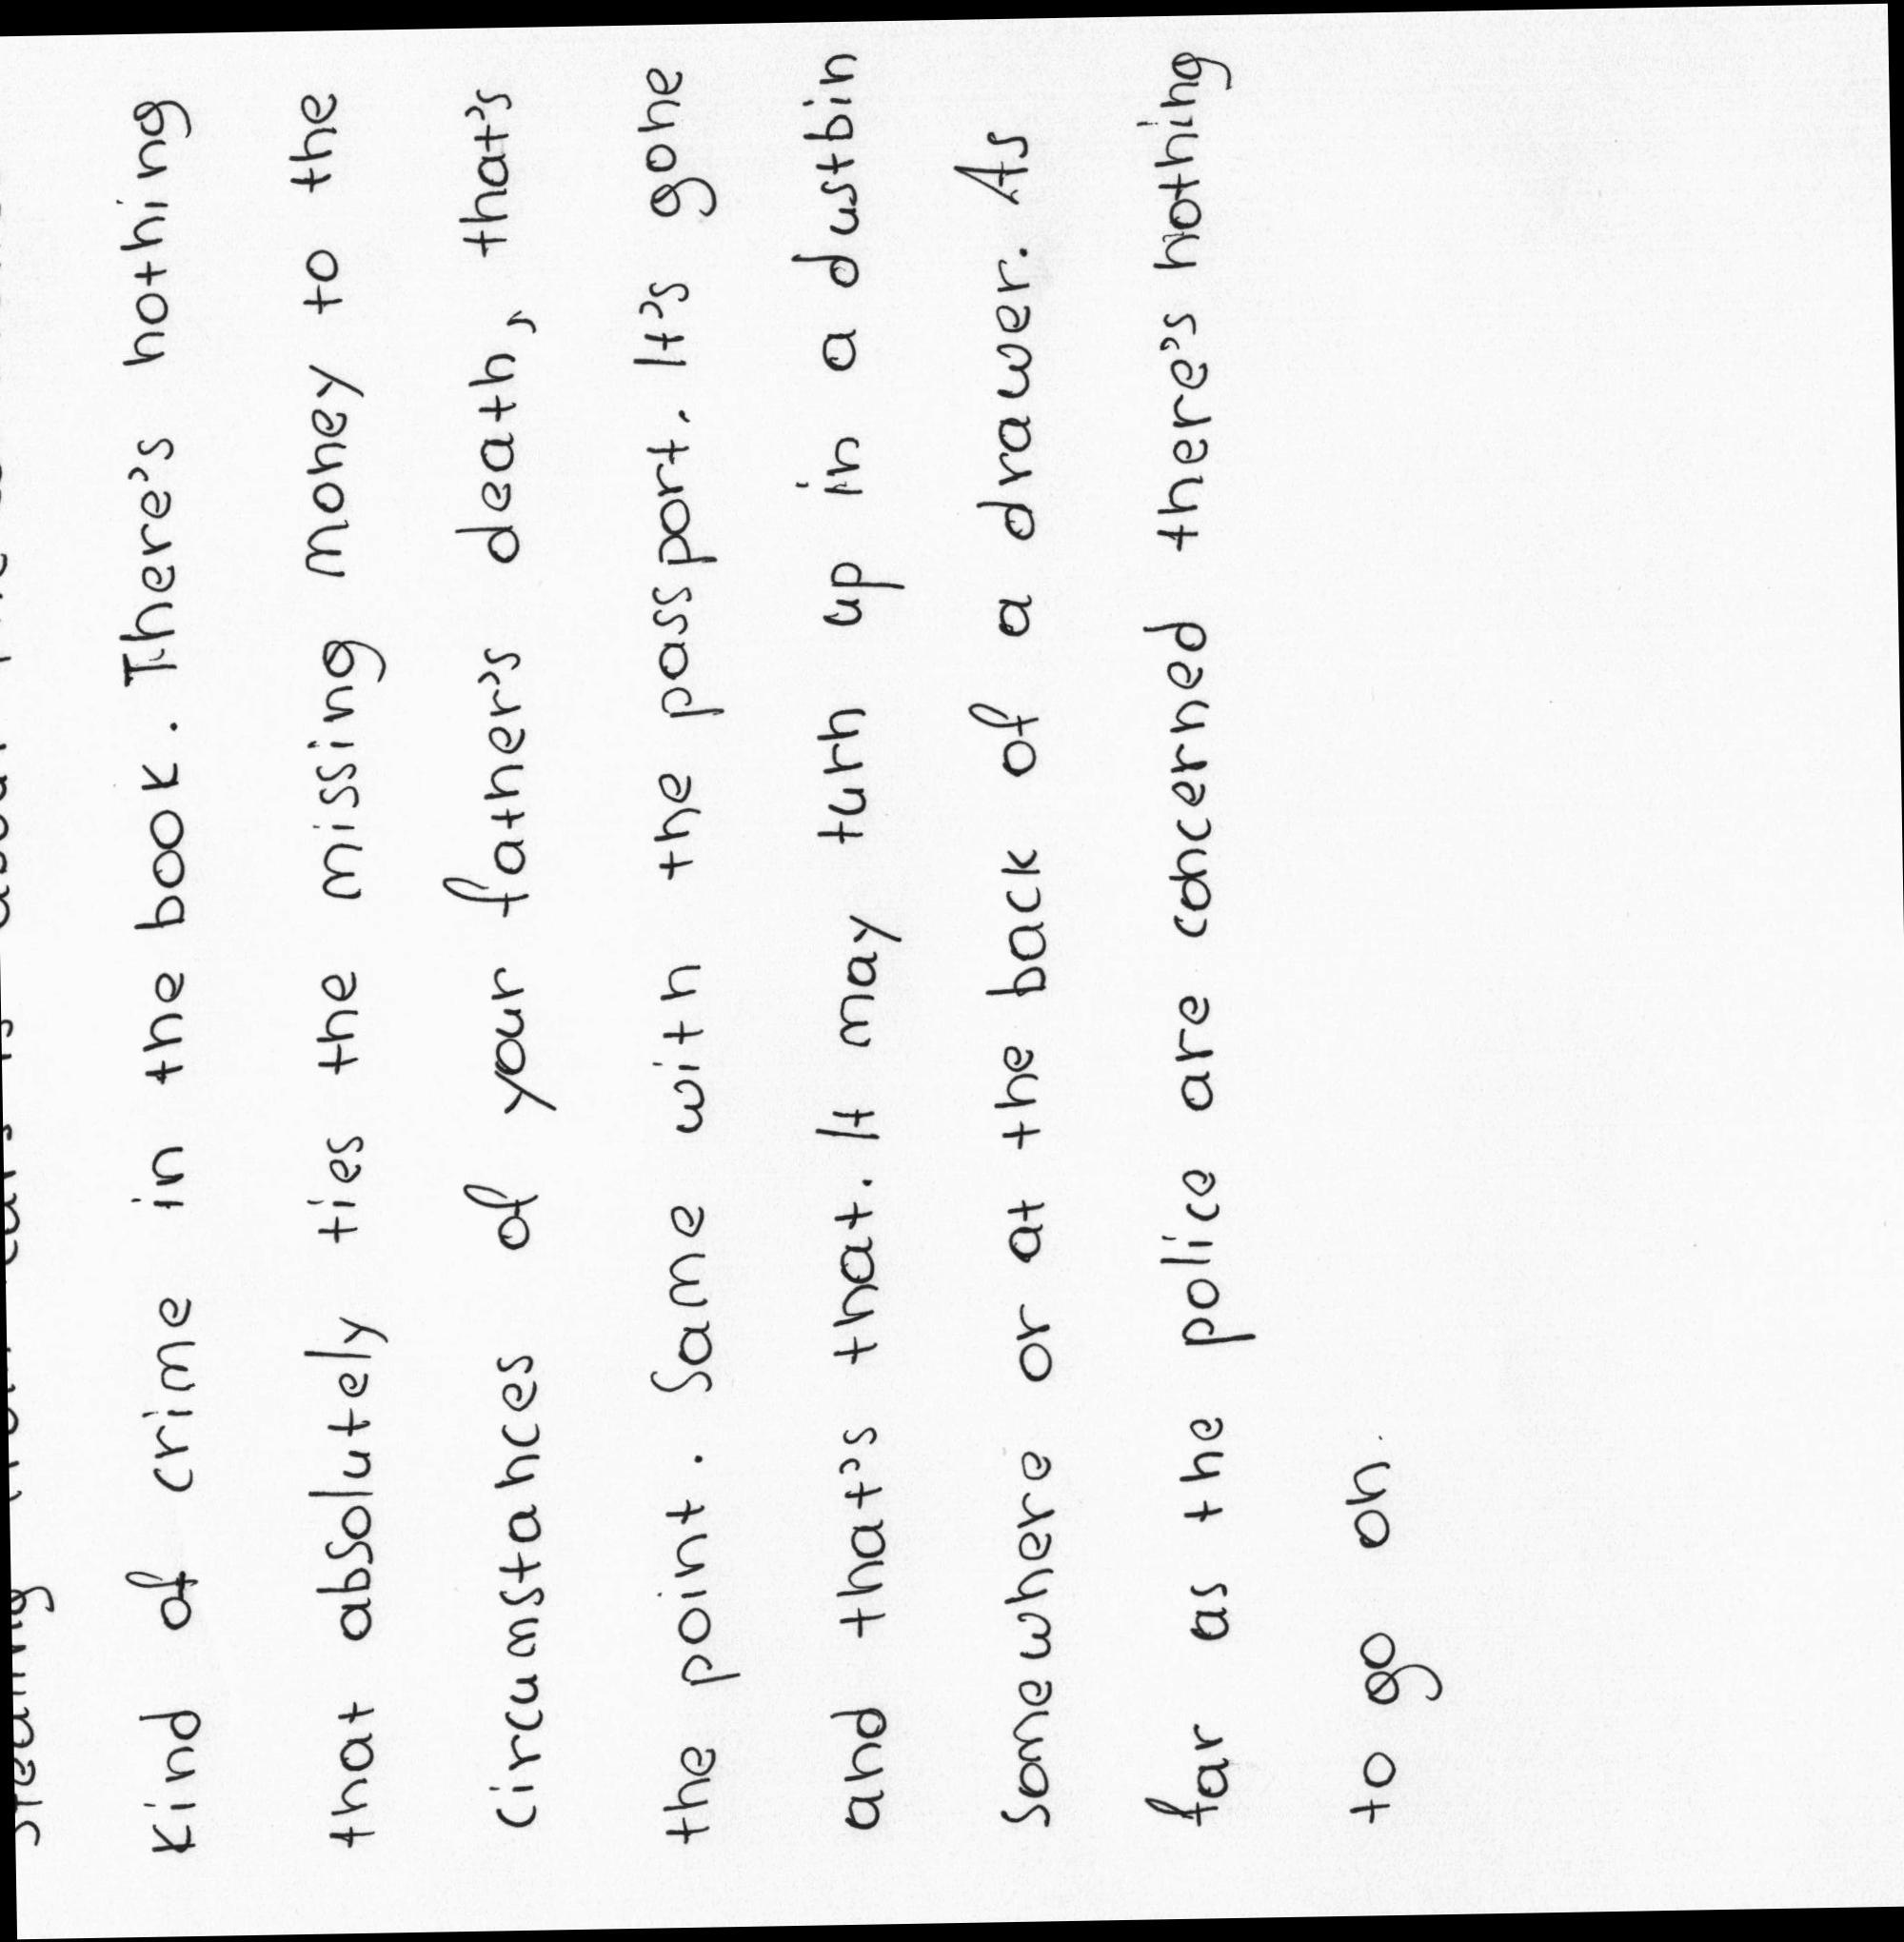 kind of crime in the book. There's nothing
that absolutely ties the missing money to the
circumstances of your father's death, that's
the point. Same with the passport. It's gone
and that's that. It may turn up in a dustbin
somewhere or at the back of a drawer. As
far as the police are concerned there's nothing
to go on.